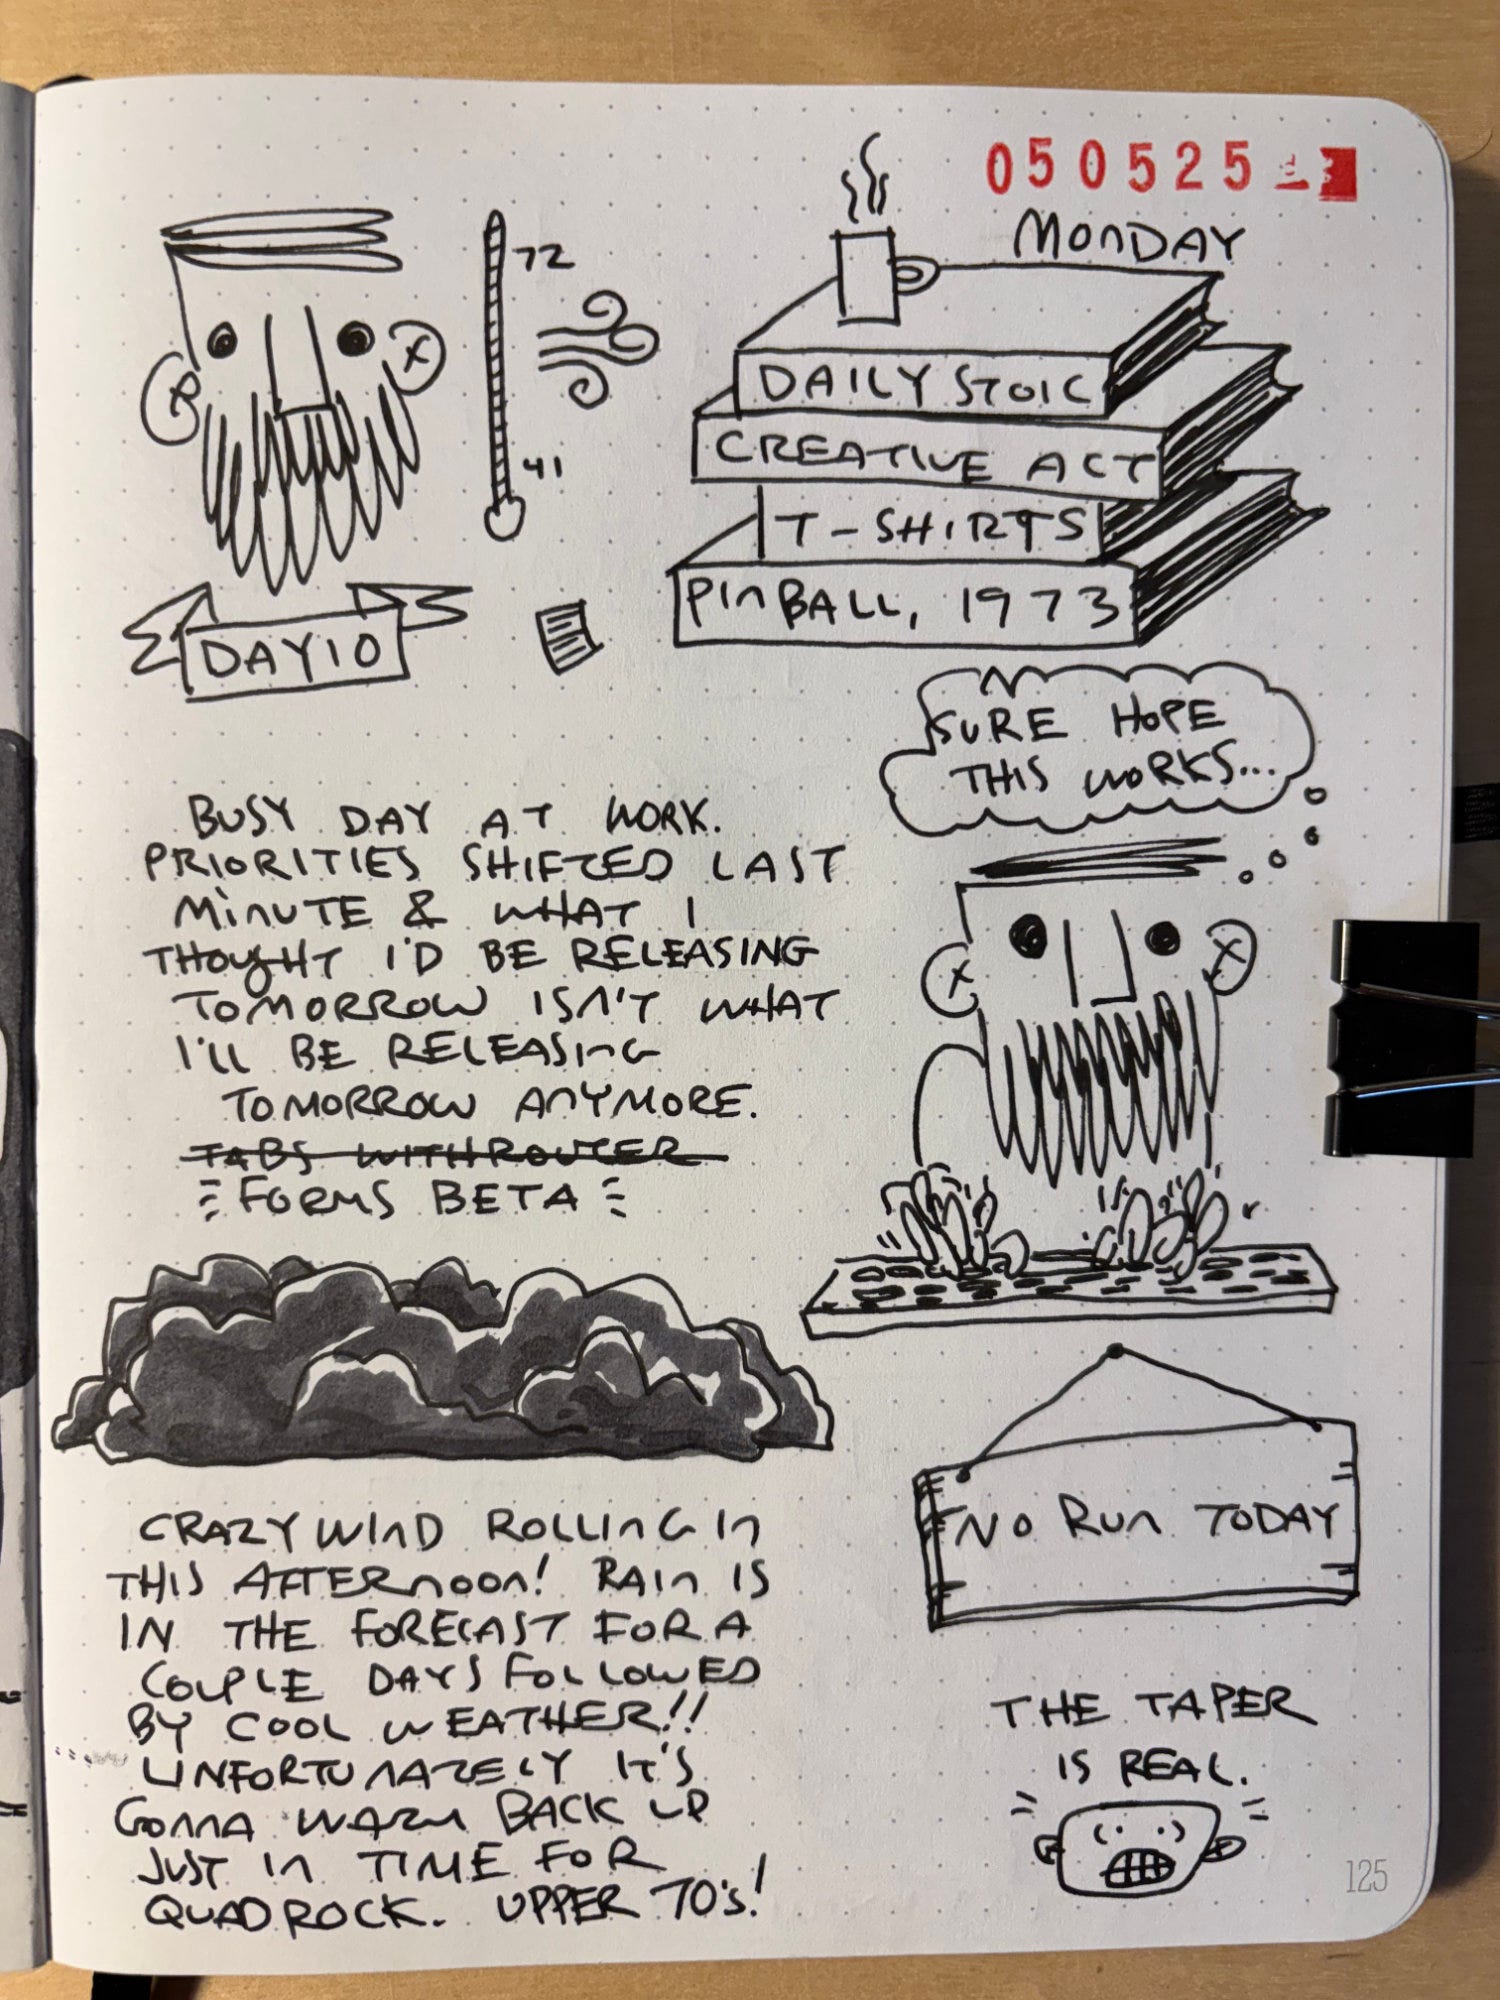 050525
MONDAY
72
41
DAILY STOIC
CREATIVE ACT
T-SHIRTS
PINBALL, 1973
DAY 10
SURE HOPE
THIS WORKS...
BUSY DAY AT WORK.
PRIORITIES SHIFTED LAST
MINUTE & WHAT I
THOUGHT I'D BE RELEASING
TOMORROW ISN'T WHAT
I'LL BE RELEASING
TOMORROW ANYMORE.
TABS WITH ROUTER
FORMS BETA
CRAZY WIND ROLLING IN
THIS AFTERNOON! RAIN IS
IN THE FORECAST FOR A
COUPLE DAYS FOLLOWED
BY COOL WEATHER!!
UNFORTUNATELY IT'S
GONNA WARM BACK UP
JUST IN TIME FOR
QUADROCK. UPPER 70's!
NO RUN TODAY
THE TAPER
IS REAL.
125